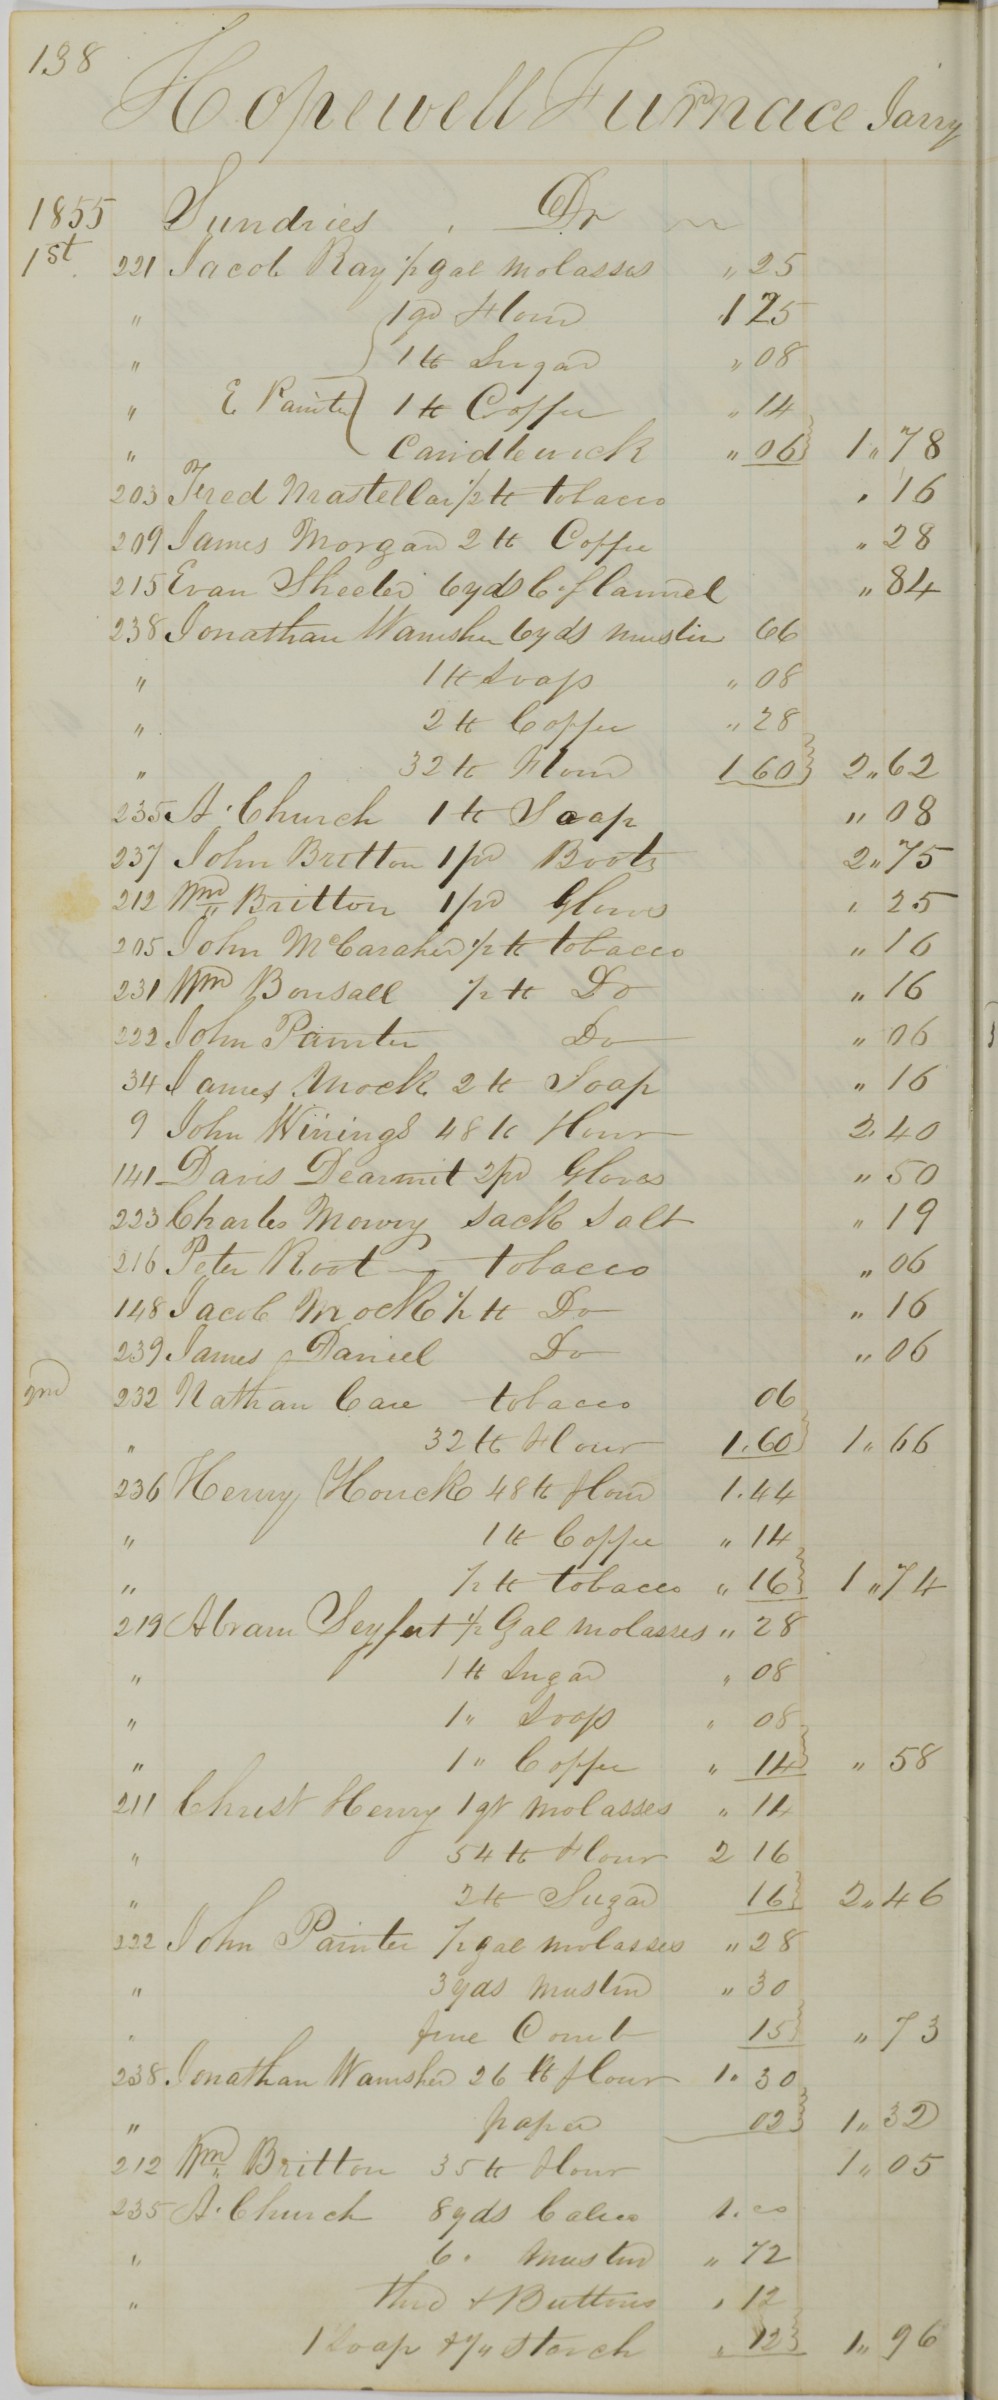 138
Hopewell Furnace Jany
1855 Sundries . Dr
1st 221 Jacob Ray 1/2 gal molasses " 25
" 1 qr Flour 1 25
" 1 lb Sugar " 08
" E Painter 1 lb Coffee " 14
" Candlewick " 06 1 " 78
203 Fred 1/2 lb tobacco " 16
209 James Morgan 2 lb Coffee " 28
215 Evan Sheeler 6 yds C. flannel " 84
238 Jonathan Wamsher 6 yds muslin 66
" 1 lb Soap " 08
" 2 lb Coffee " 28
" 32 lb Flour 1 60 2 " 62
235 A. Church 1 lb Soap " 08
237 John Britton 1 pr Boots 2 " 75
212 Wm Britton 1 pr Gloves " 25
205 John McCaraher 1/2 lb tobacco " 16
231 Wm Bonsall 1/2 lb Do " 16
222 John Painter Do " 06
34 James Mock 2 lb Soap " 16
9 John Winings 48 lb Flour 2. 40
141 Davis Dearmit 2 pr Gloves " 50
223 Charles Mowry sack salt " 19
216 Peter Root tobacco " 06
148 Jacob Mock 1/2 lb Do " 16
239 James Daniel Do " 06
2nd 232 Nathan Care tobacco 06
" 32 lb Flour 1. 60 1 " 66
236 Henry Houck 48 lb flour 1. 44
" 1 lb Coffee " 14
" 1/2 lb tobacco " 16 1 " 74
219 Abram Seyfert 1/2 Gal molasses " 28
" 1 lb Sugar " 08
" 1 " Soap " 08
" 1 " Coffee " 14 " 58
211 Christ Henry 1 qt molasses " 14
" 54 lb Flour 2 16
" 2 lb Sugar 16 2 " 46
222 John Painter 1/2 gal molasses " 28
" 3 yds muslin " 30
" fine Comb 15 " 73
238 Jonathan Wamsher 26 lb flour 1. 30
" paper 02 1 " 32
212 Wm Britton 35 lb Flour 1 " 05
235 A. Church 8 yds Calico 1. 00
" 6 " Muslin " 72
" thrd & Buttons " 12
1 Soap & Starch " 12 1 " 96